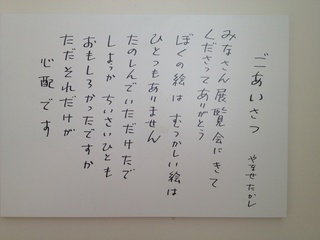 ごあいさつ
やなせたかし
みなさん 展覧会にきて
くださってありがとう
ぼくの絵は むつかしい絵は
ひとつもありません
たのしんでいただけたで
しょうか ちいさいひとも
おもしろかったですか
ただそれだけが
心配です